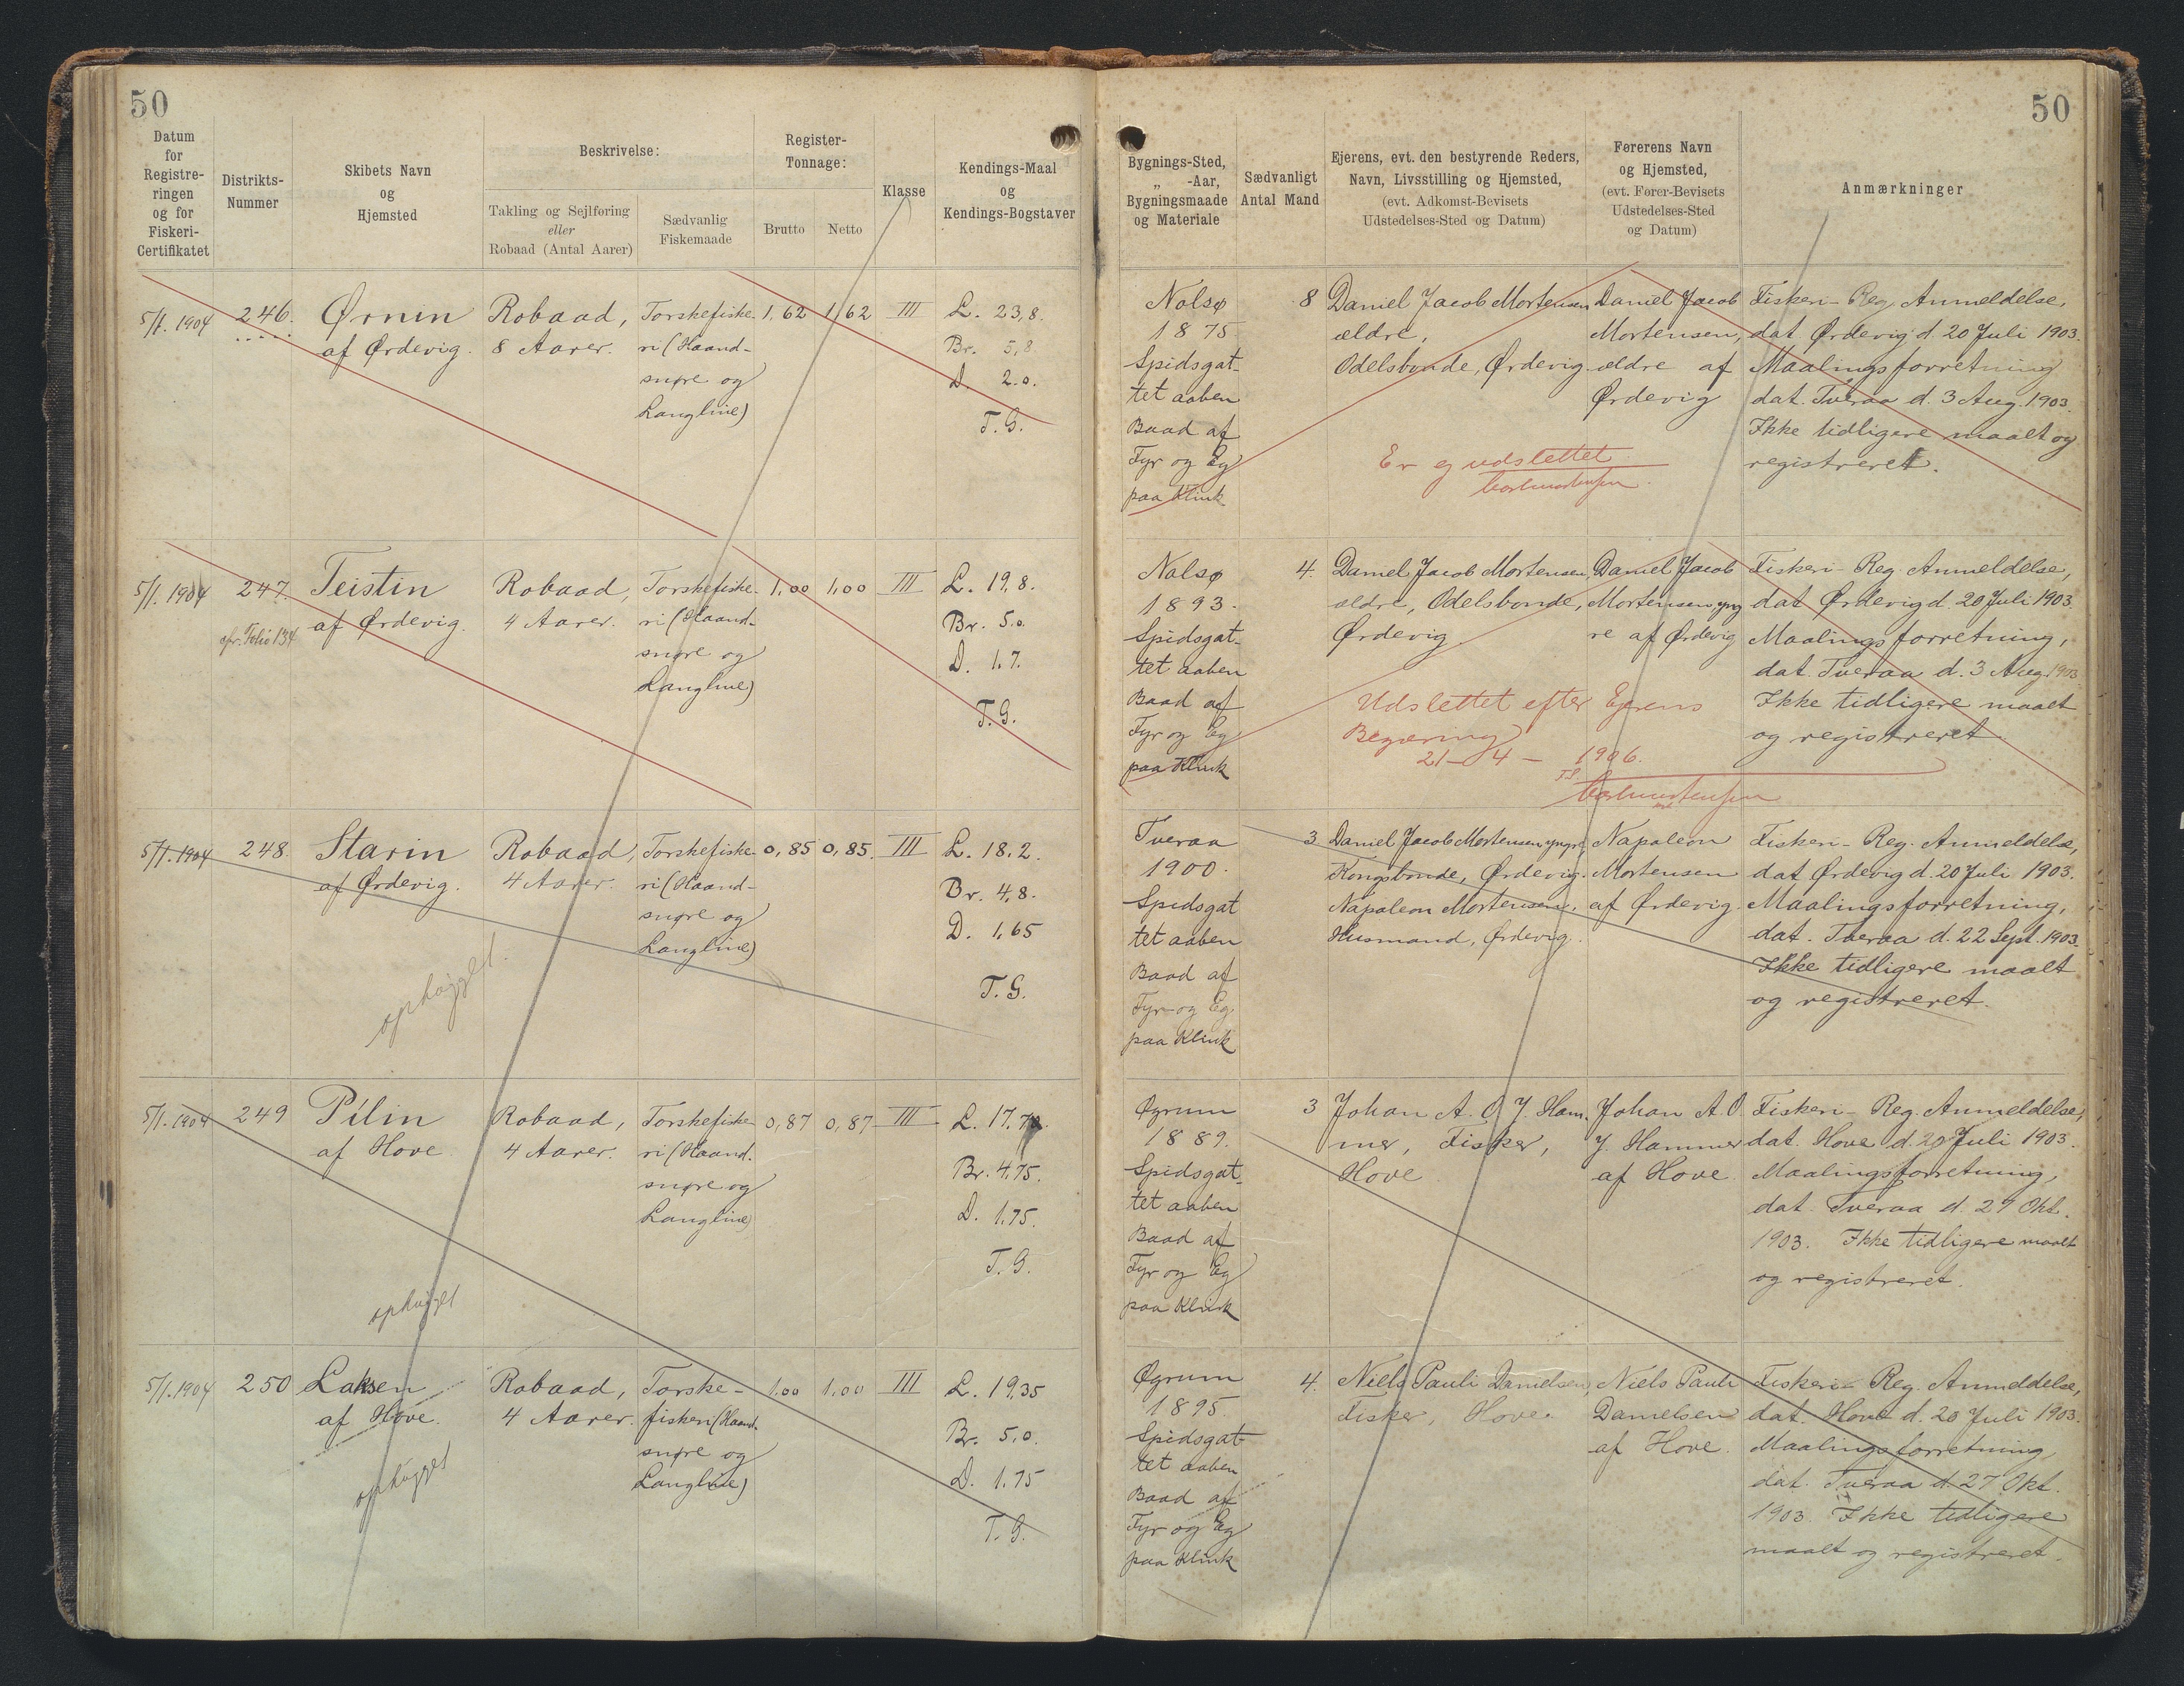 50
50
Datum
for
Registre-
ringen
og for
Fiskeri-
Certifikatet
Distrikts-
Nummer
Skibets Navn
og
Hjemsted
Beskrivelse:
Takling og Sejlføring
eller
Robaad (Antal Aarer)
Sædvanlig
Fiskemaade
Register-
Tonnage:
Brutto
Netto
Klasse
Kendings-Maal
og
Kendings-Bogstaver
Bygnings-Sted,
„ -Aar,
Bygningsmaade
og Materiale
Sædvanligt
Antal Mand
Ejerens, evt. den bestyrende Reders,
Navn, Livsstilling og Hjemsted,
(evt. Adkomst-Bevisets
Udstedelses-Sted og Datum)
Førerens Navn
og Hjemsted,
(evt. Fører-Bevisets
Udstedelses-Sted
og Datum)
Anmærkninger
5/1. 1904
246.
Ørnin
af Ørdevig.
Robaad,
8 Aarer.
Torskefiske-
ri (Haand-
snøre og
Langline)
1,62
1,62
III
L. 23,8.
Br. 5,8.
D. 2.0.
T. G.
Nolsø
1875
Spidsgat-
tet aaben
Baad af
Fyr og Eg
paa Klink
8
Daniel Jacob Mortensen
ældre,
Odelsbonde, Ørdevig.
Er ej udslettet
Daniel Jacob
Mortensen,
ældre af
Ørdevig
Fiskeri-Reg. Anmeldelse,
dat Ørdevig d. 20 Juli 1903.
Maalingsforretning
dat. Tveraa d. 3 Aug. 1903.
Ikke tidligere maalt og
registreret.
5/1. 1904
247.
Folio 134
Teistin
af Ørdevig.
Robaad,
4 Aarer.
Torskefiske-
ri (Haand-
snøre og
Langline)
1,00
1,00
III
L. 19,8.
Br. 5.0.
D. 1.7.
T. G.
Nolsø
1893.
Spidsgat-
tet aaben
Baad af
Fyr og Eg
paa Klink
4.
Daniel Jacob Mortensen,
ældre, Odelsbonde,
Ørdevig.
Udslettet efter Ejerens
Begæring
21 – 4 – 1906.
Daniel Jacob
Mortensen yng
re af Ørdevig
Fiskeri-Reg. Anmeldelse,
dat Ørdevig d. 20 Juli 1903.
Maalingsforretning,
dat. Tveraa d. 3 Aug. 1903.
Ikke tidligere maalt
og registreret.
5/1. 1904
248.
Starin
af Ørdevig.
ophugget.
Robaad,
4 Aarer.
Torskefiske-
ri (Haand-
snøre og
Langline)
0,85
0,85.
III
L. 18.2.
Br. 4,8.
D. 1,65
T. G.
Tveraa
1900.
Spidsgat
tet aaben
Baad af
Fyr og Eg
paa Klink
3
Daniel Jacob Mortensen yngre,
Kongsbonde, Ørdevig.
Napoleon Mortensen,
Husmand, Ørdevig.
Napoleon
Mortensen
af Ørdevig.
Fiskeri-Reg. Anmeldelse,
dat Ørdevig d. 20 Juli 1903.
Maalingsforretning,
dat. Tveraa d. 22 Sept. 1903.
Ikke tidligere maalt
og registreret.
5/1. 1904
249
Pilin
af Hove
ophugget
Robaad,
4 Aarer.
Torskefiske-
ri (Haand.
snøre og
Langline)
0,87
0,87
III
L. 17.70.
Br. 4.75.
D. 1.75.
T. G.
Øgrum
1889.
Spidsgat-
tet aaben
Baad af
Fyr og Eg
paa Klink
3
Johan A. O. J. Ham-
mer, Fisker,
Hove
Johan A. O
J. Hammer
af Hove
Fiskeri-Reg. Anmeldelse,
dat. Hove d. 20 Juli 1903.
Maalingsforretning,
dat. Tveraa d. 27 Okt.
1903. Ikke tidligere maalt
og registreret.
5/1. 1904
250
Laksen
af Hove.
ophugget
Robaad,
4 Aarer.
Torske-
fiskeri (Haand-
snøre og
Langline)
1.00
1,00
III
L. 19,35
Br. 5,0.
D. 1.75
T. G.
Øgrum
1895.
Spidsgat-
tet aaben
Baad af
Fyr og Eg
paa Klink
4.
Niels Pauli Danielsen,
Fisker, Hove.
Niels Pauli
Danielsen
af Hove.
Fiskeri-Reg. Anmeldelse,
dat. Hove d. 20 Juli 1903.
Maalingsforretning,
dat. Tveraa d. 27 Okt.
1903. Ikke tidligere
maalt og registreret.